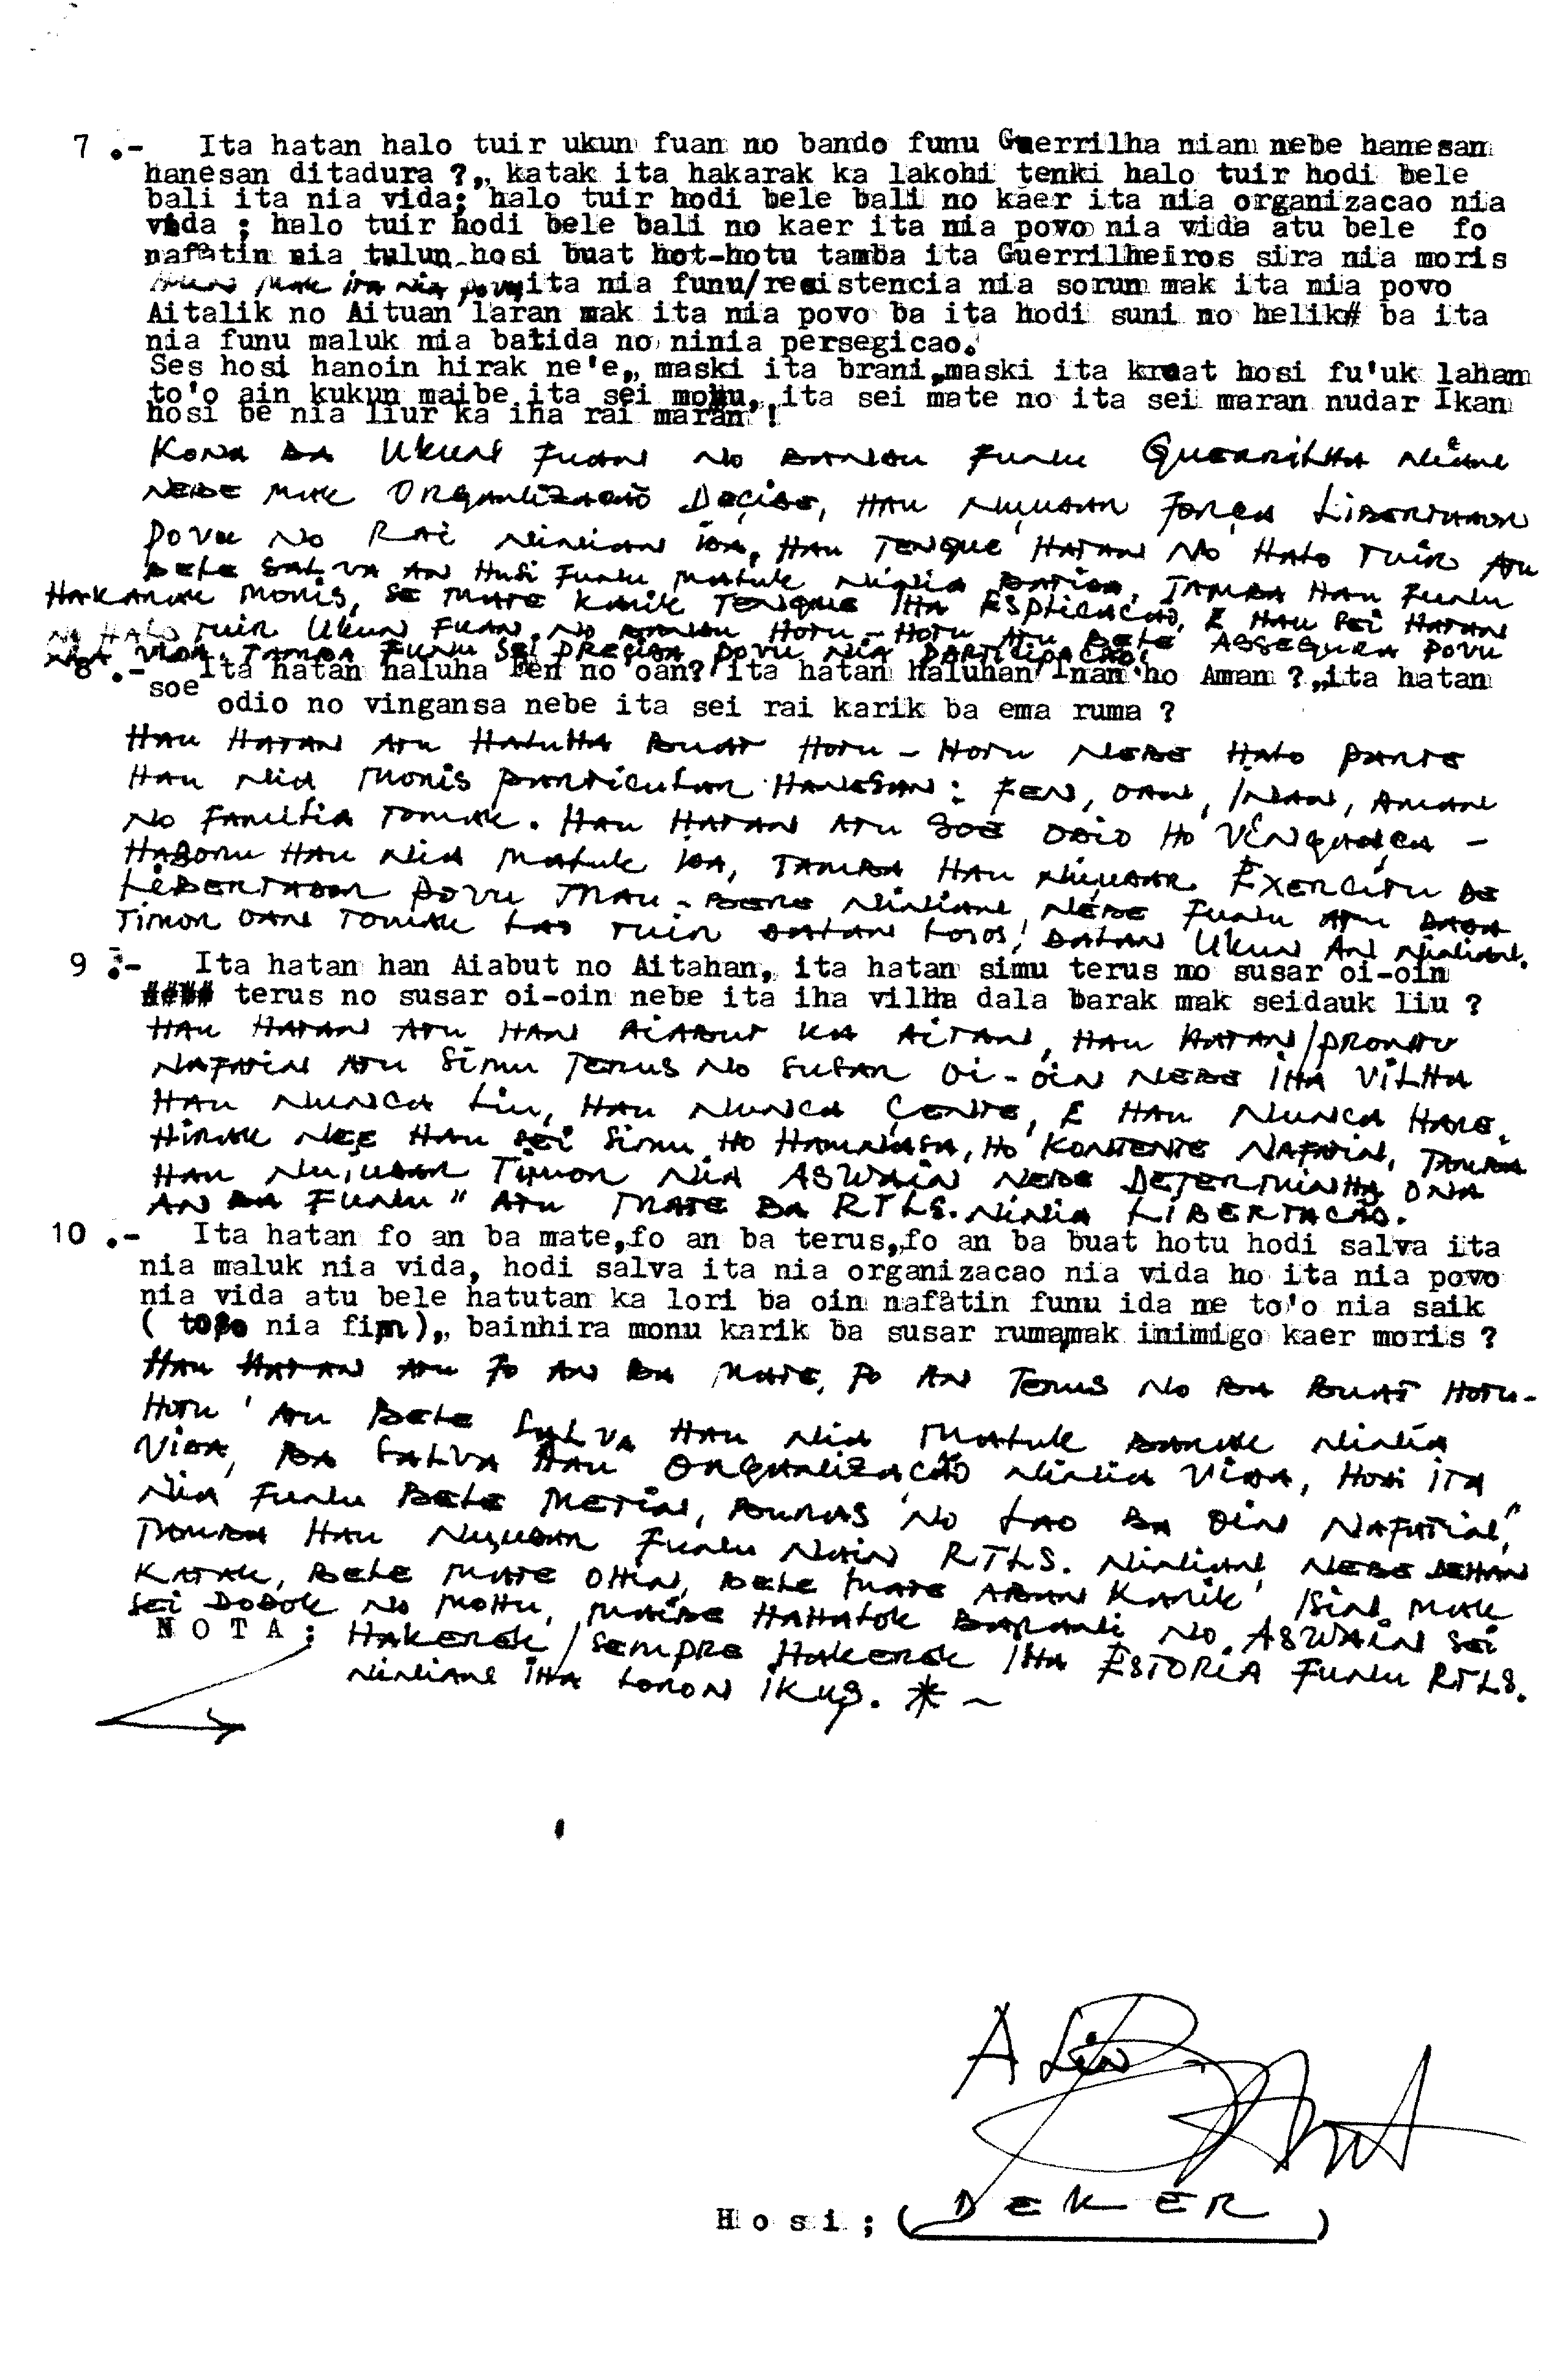 7 .-   Ita hatan halo tuir ukun fuan no bando funu Guerrilha nian nebe hanesan
hanesan ditadura ?,, katak ita hakarak ka lakohi tenki halo tuir hodi bele
bali ita nia vida; halo tuir hodi bele bali no kaer ita nia organizacao nia
vida ; halo tuir hodi bele bali no kaer ita nia povo nia vida atu bele fo
nafâtin nia tulun hosi buat hot-hotu tamba ita Guerrilheiros sira nia moris
mak ita nia povo, ita nia funu/resistencia nia sorun mak ita nia povo
Aitalik no Aituan laran mak ita nia povo ba ita hodi suni no helik# ba ita
nia funu maluk nia batida no ninia persegicao.
Ses hosi hanoin hirak ne'e,, maski ita brani,,maski ita kraat hosi fu'uk laham
to'o ain kukun maibe ita sei mohu,, ita sei mate no ita sei maran nudar Ikan
hosi be nia liur ka iha rai maran !
Kona ba Ukun Fuan no bandu Funu Guerrilha nian
nebe mak Organização Decide, Hau nuudar Força Libertador
Povu no Rai ninian ida, Hau Tenque Hatan no Halo Tuir Atu
bele Salva an Husi Funu Maluk ninia batida, Tamba Hau Funu
Hakarak Moris, se Mate karik Tenque iha Esplicação, E Hau sei Hatan
no Halo Tuir Ukun Fuan no bandu Hotu-Hotu Atu bele Assegura Povu
nia vida, Tamba Funu sei precisa Povu nia participação!
8 .-   Ita hatan haluha Fen no oan? ita hatan haluhan Inan ho Aman ?,,ita hatan
soe odio no vingansa nebe ita sei rai karik ba ema ruma ?
Hau Hatan Atu Haluha buat Hotu-Hotu nebe Halo parte
Hau nia Moris particular Hanesan: Fen, oan, Inan, Aman
no Familia Tomak. Hau Hatan Atu Soe Odio Ho Vingança -
Hasoru Hau nia Maluk ida, Tamba Hau nuudar Exercitu de
Libertador Povu Mau-bere ninian, nebe Funu Atu
Timor oan Tomak Lao Tuir Dalan Loos, Dalan Ukun An ninian.
9 .-   Ita hatan han Aiabut no Aitahan,, ita hatan simu terus no susar oi-oin
#### terus no susar oi-oin nebe ita iha vilha dala barak mak seidauk liu ?
Hau Hatan Atu Han Aiabut ka Aitan, Hau Hatan/prontu
nafatin Atu Simu Terus no Susar Oi-oin nebe iha Vilha
Hau nunca Liu, Hau nunca Çente, E Hau nunca Hare.
Hirak nee Hau sei Simu Ho Hamnasa, Ho Kontente Nafatin, Tamba
Hau nuudar Timor nia Aswain nebe Determinha ona
An ba Funu " Atu Mate ba RTLS. ninia Libertacão.
10 .-   Ita hatan fo an ba mate,,fo an ba terus,,fo an ba buat hotu hodi salva ita
nia maluk nia vida, hodi salva ita nia organizacao nia vida ho ita nia povo
nia vida atu bele hatutan ka lori ba oin nafâtin funu ida ne to'o nia saik
( to'o nia fim),, bainhira monu karik ba susar ruma,mak inimigo kaer moris ?
Hau Hatan Atu Fo An ba Mate, Fo An Terus no ba buat Hotu-
Hotu ' Atu bele Salva Hau nia Maluk barak ninia
Vida, ba Salva Hau Organização ninia Vida, Hosi ita
nia Funu bele Metin, buras no Lao ba Oin Nafatin,"
Tamba Hau nuudar Funu Nain RTLS. ninian nebe dehan
Katak, bele Mate Ohin, bele Mate Aban Karik' Isin Mak
sei Dodok no Mohu, Maibe Hahalok Barani no Aswain sei
N O T A ; Hakerek/Sempre Hakerek iha Estoria Funu RTLS.
ninian iha Loron ikus. * ~
A Lin
H o s i ; ( DEKER )